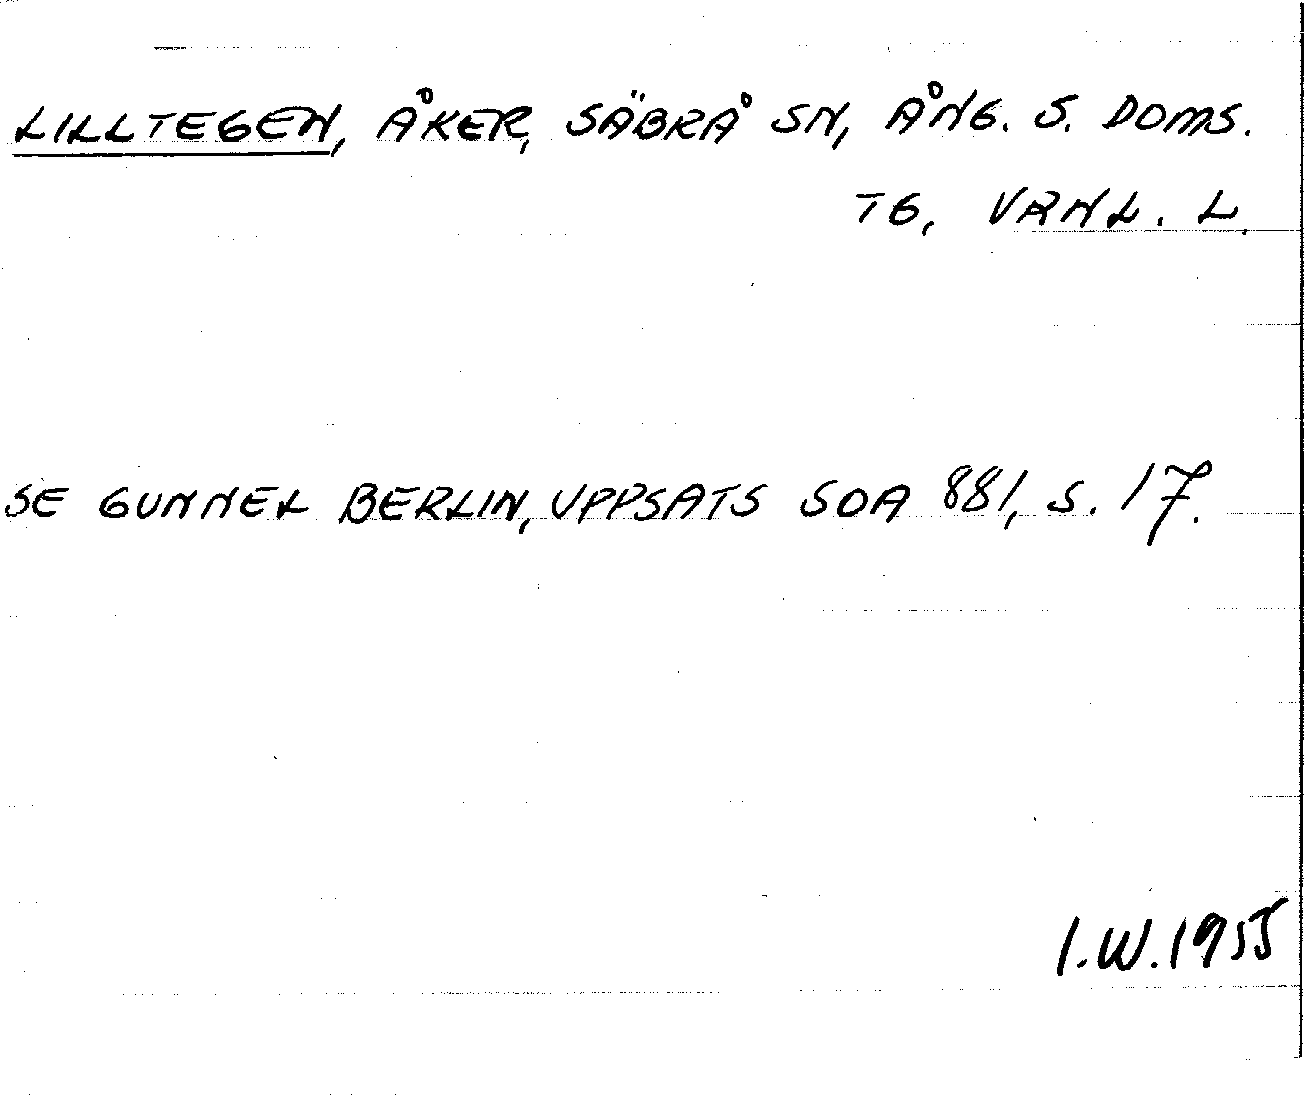 LILLTEGEN, ÅKER, SÄBRÅ SN, ÅNG. S. DOMS.
TG, VRNL. L.
SE GUNNEL BERLIN, UPPSATS SOA 881, S. 17.
I.W. 1955